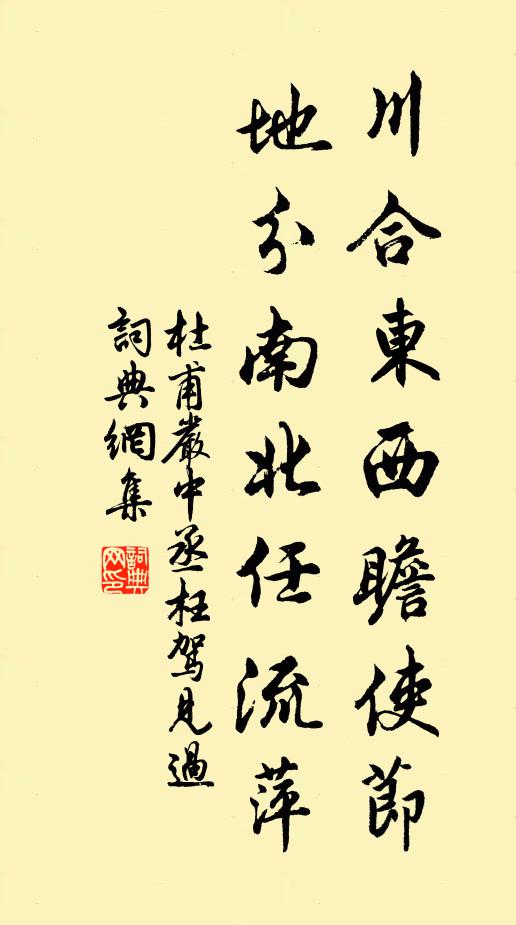 川合東西瞻使節
地分南北任流萍
杜甫嚴中丞枉駕見過
詞典網集
詞典
网印